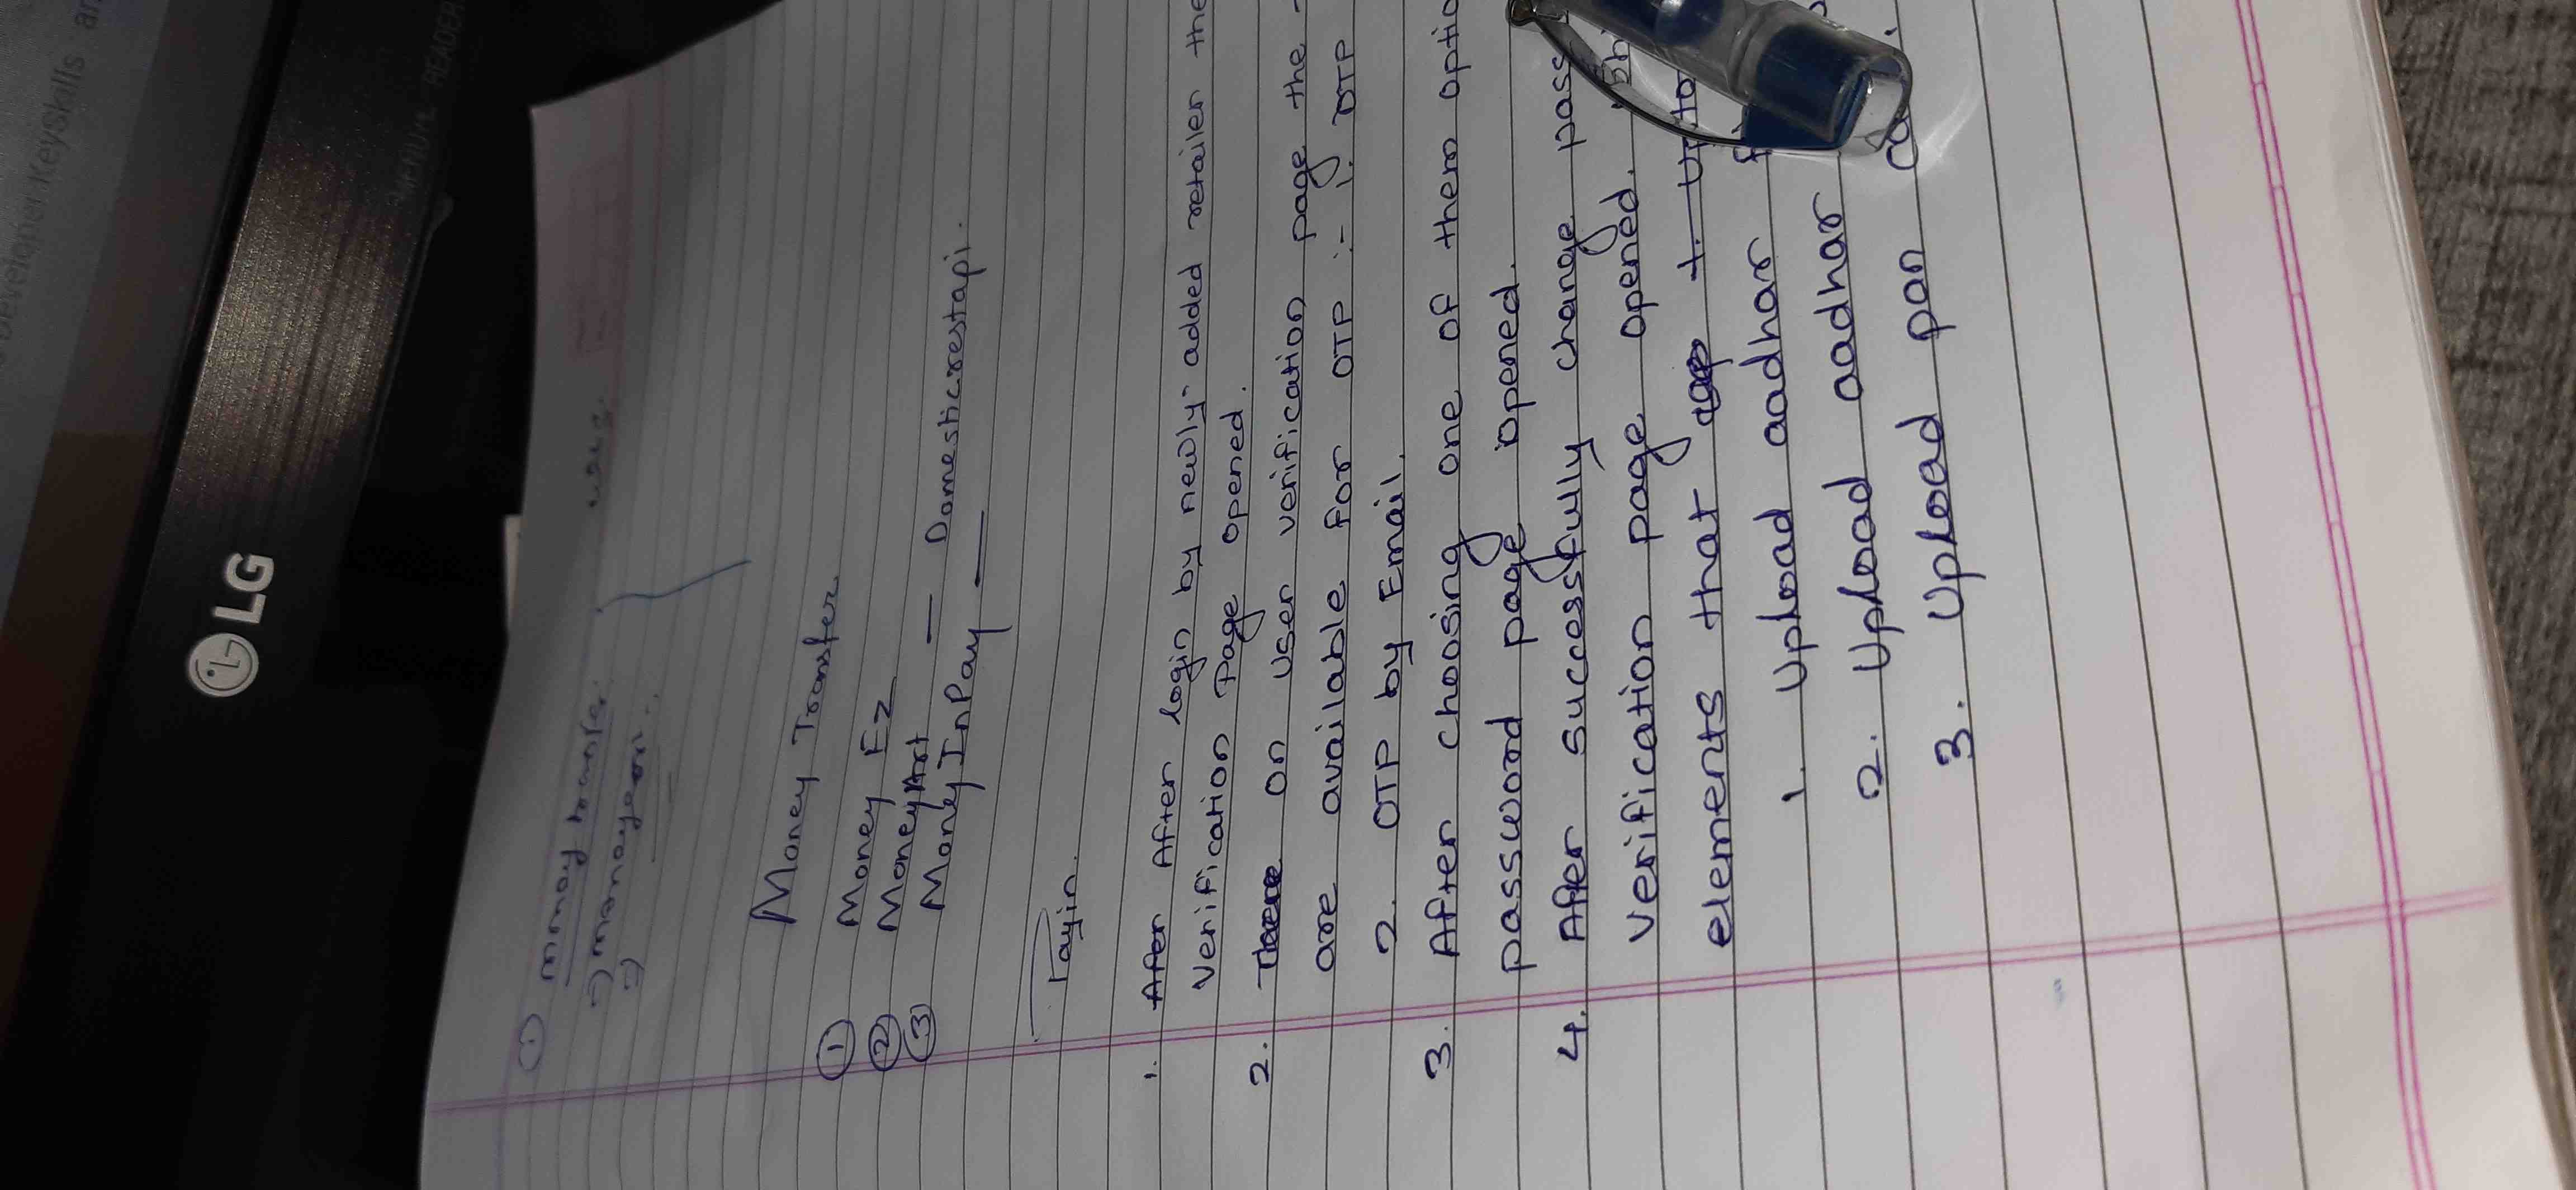 Developer Keyskills
MENU
READER
LG
Money Transfer
① Money Ez
② MoneyArt
③ MoneyInPay — Domesticrestapi.
1. After After login by newly added retailer the
Verification Page opened.
2. There on user verification page the
are available for OTP :- 1. OTP
2. OTP by Email.
3. After choosing one of them optio
password page opened.
4. After successfully change pass
verification page opened.
elements that
1. Upload aadhar
2. Upload aadhar
3. Upload pan